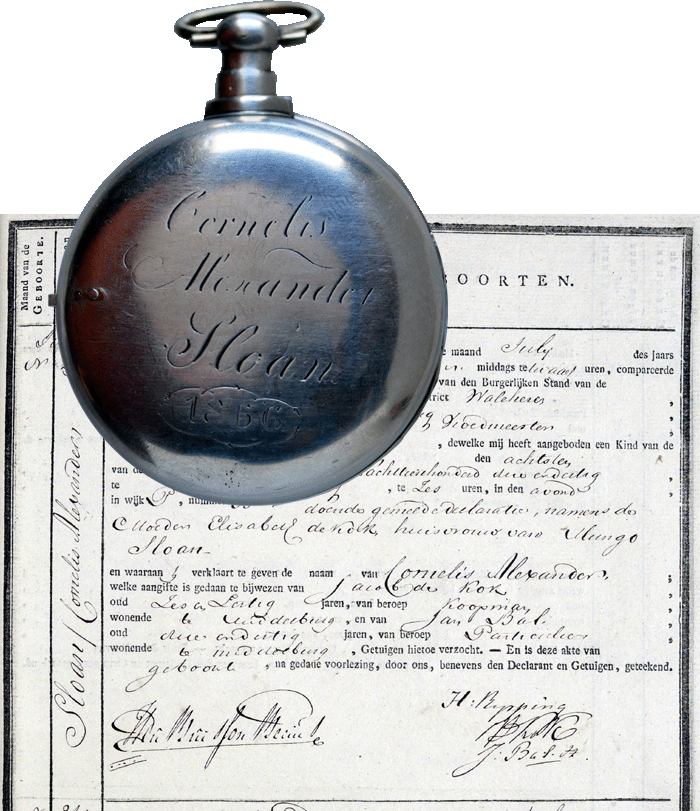 Cornelis
Alexander
Sloan
1856
Maand van de
GEBOORTE.
OORTEN.
maand July des jaars
middags te twaalf uren, compareerde
van den Burgerlijken Stand van de
rict Walcheren
Vroedmeester
, dewelke mij heeft aangeboden een Kind van de
den achtsten
van de achttienhonderd drie en dertig
te , te zes uren, in den avond
in wijk P, doende gemelde declaratie, namens de
Elisabeth de Kok, huisvrouw van Mungo
Sloan
en waaraan verklaart te geven de naam van Cornelis Alexander,
welke aangifte is gedaan te bijwezen van Jacob de Kok
oud jaren, van beroep Koopman
wonende te Middelburg, en van Jan Bal
oud drie en dertig jaren, van beroep Particulier
wonende te Middelburg, Getuigen hiertoe verzocht. — En is deze akte van
geboorte, na gedane voorlezing, door ons, benevens den Declarant en Getuigen, geteekend.
Sloan / Cornelis Alexander
H: Rypping
J: Bal